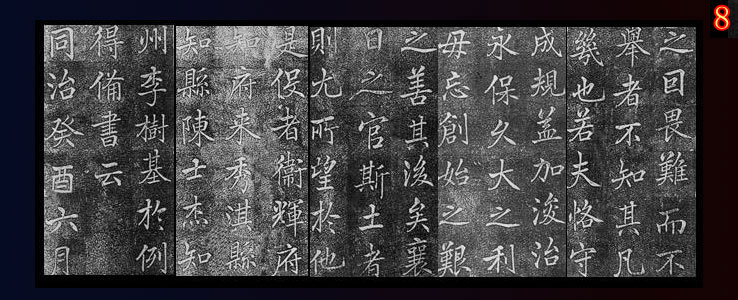 之因畏難而不
舉者不知其凡
幾也若夫恪守
成規益加浚治
永保久大之利
毋忘創始之艱
之善其後矣襄
日之官斯土者
則尤所望於他
是役者衞輝府
知府来秀淇縣
知縣陳士杰知
州李樹基於例
得備書云
同治癸酉六月
8